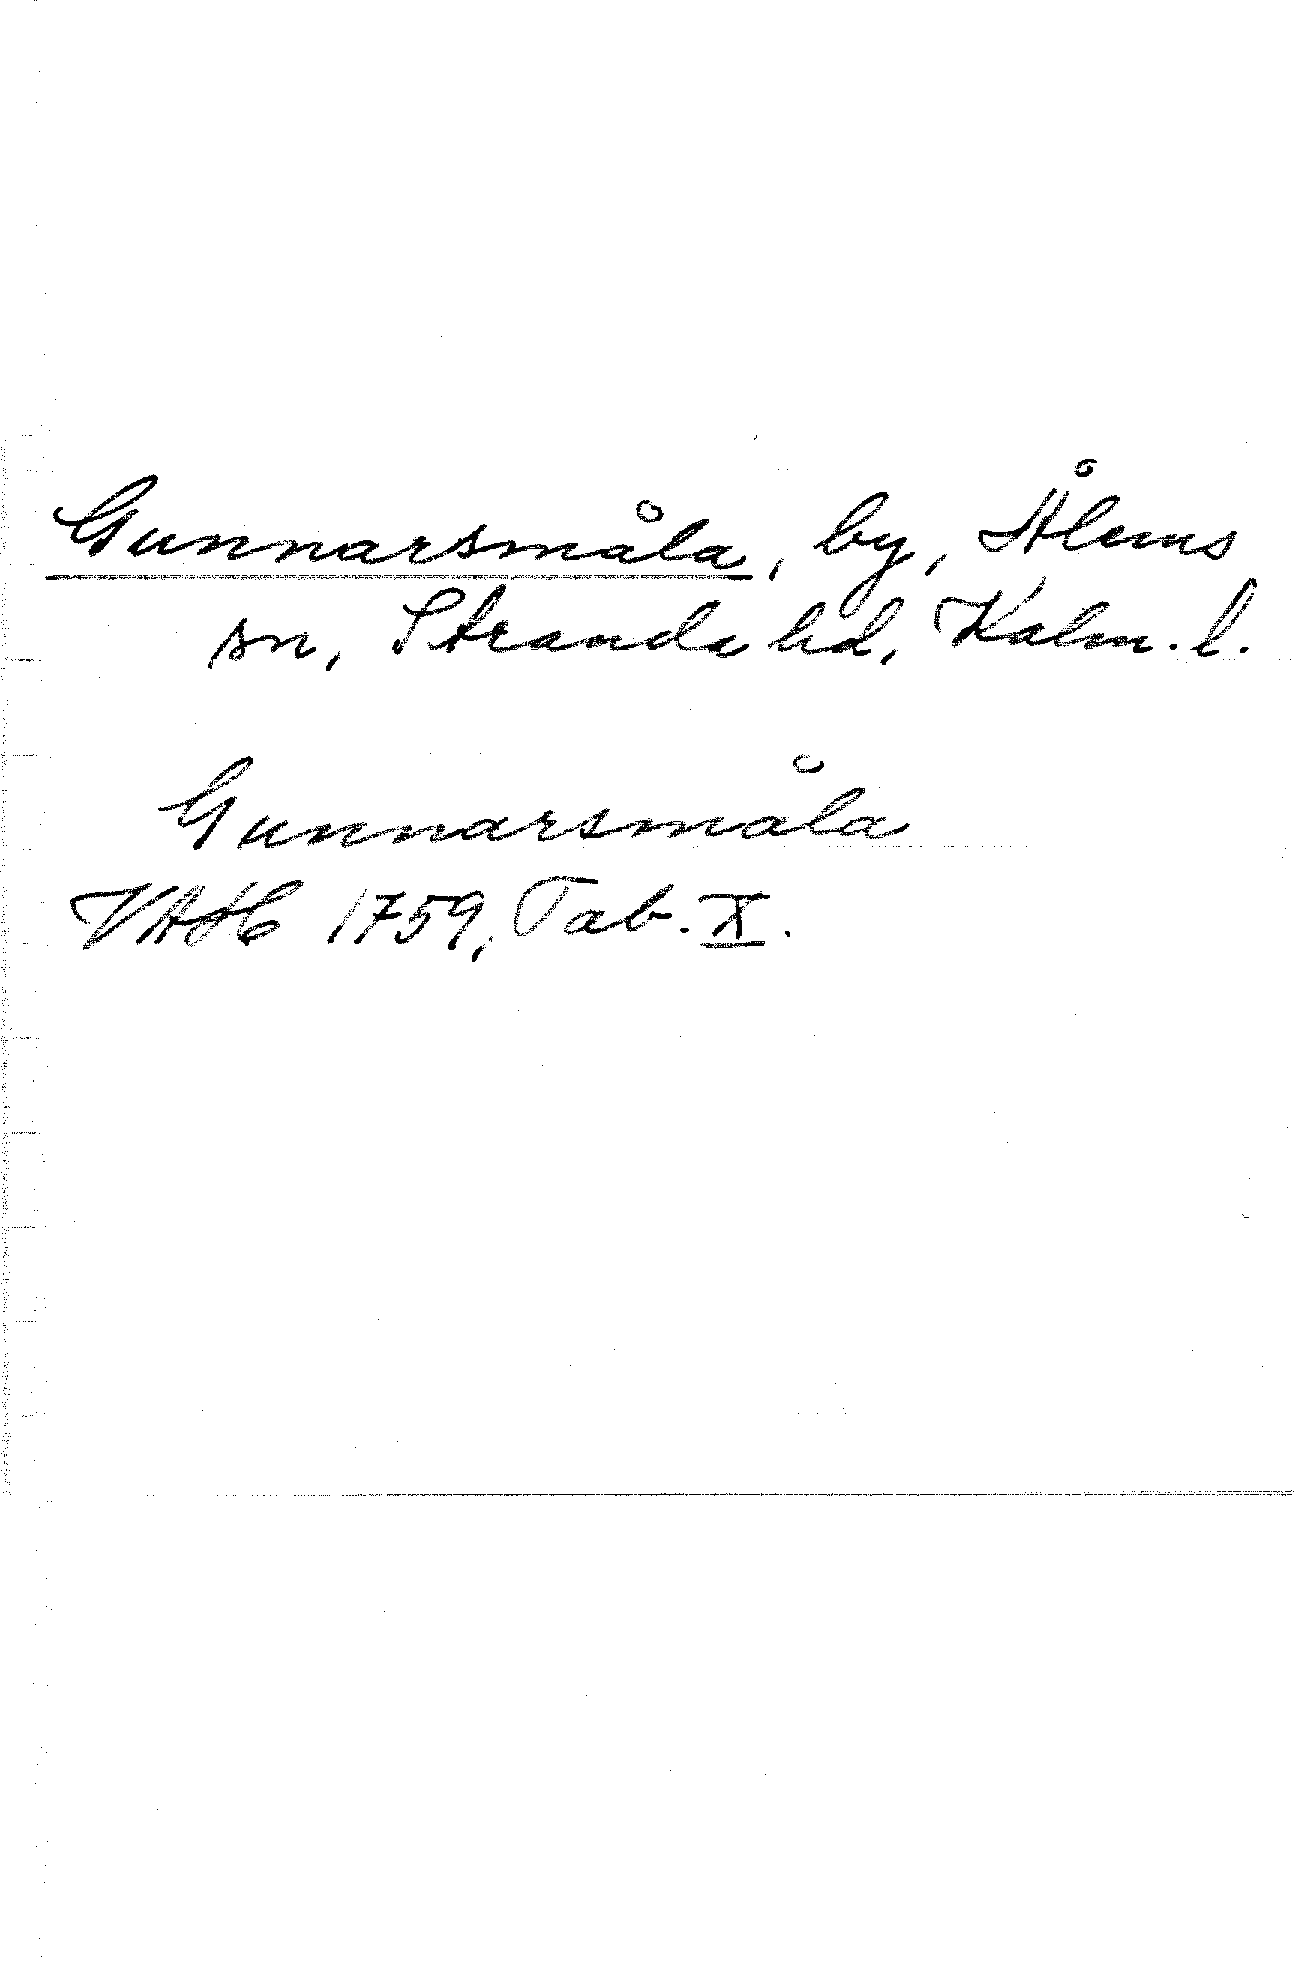 Gunnarsmåla, by, Ålems
sn, Stranda hd, Kalm. l.
Gunnarsmåla
VAH 1759, Tab. X.